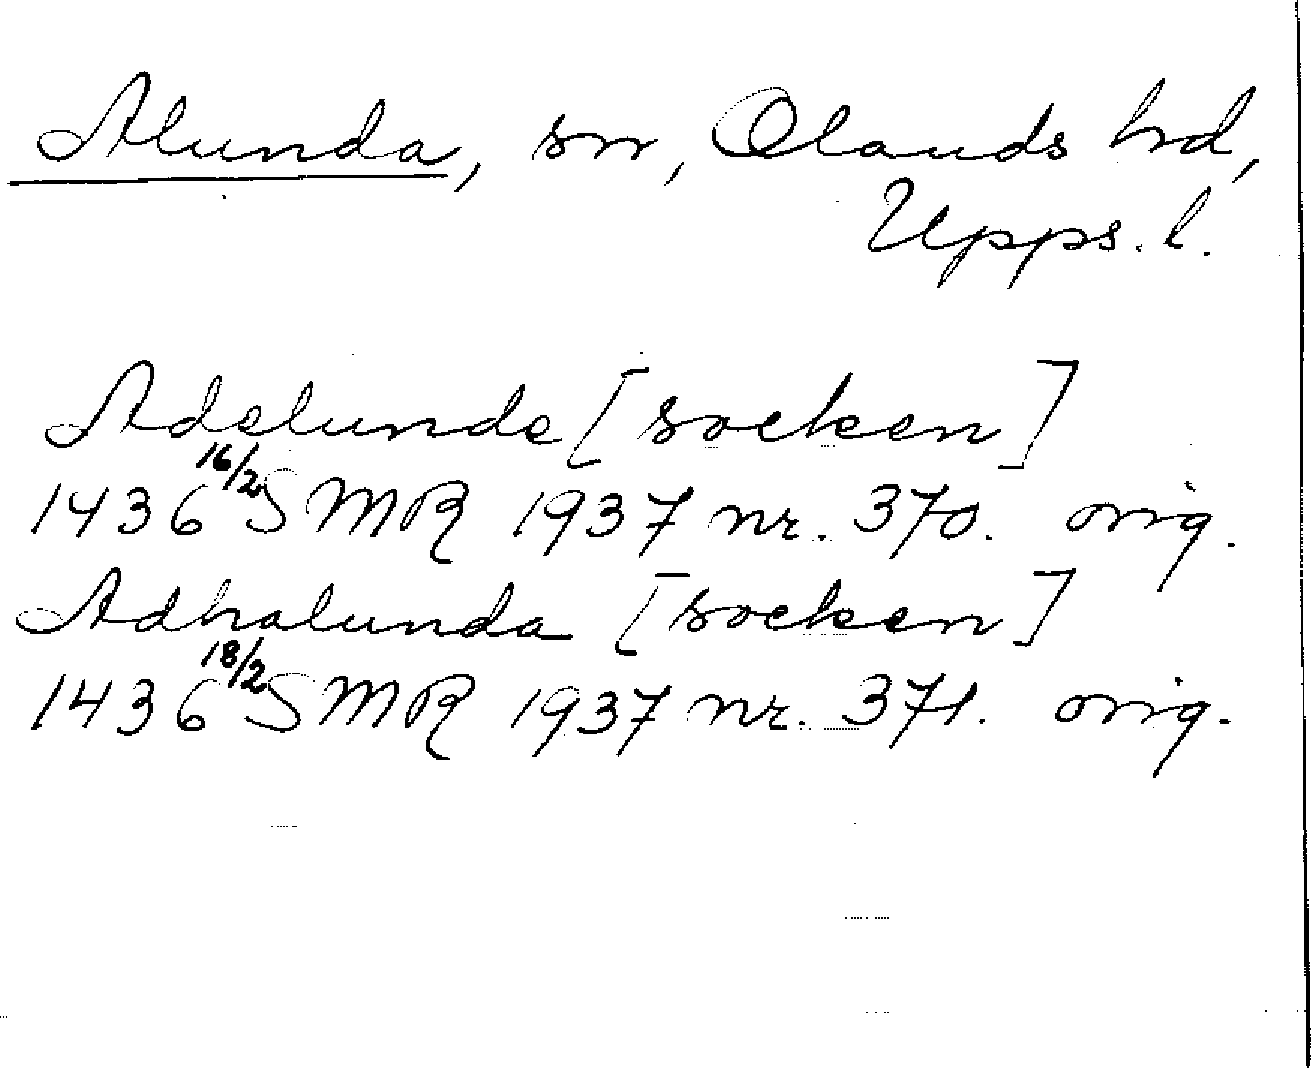 Alunda, sn, Olands hd,
Upps. l.
Adelunde [socken]
1436 16/2 SMR 1937 nr. 370. orig.
Adhalunda [socken]
1436 18/2 SMR 1937 nr. 371. orig.